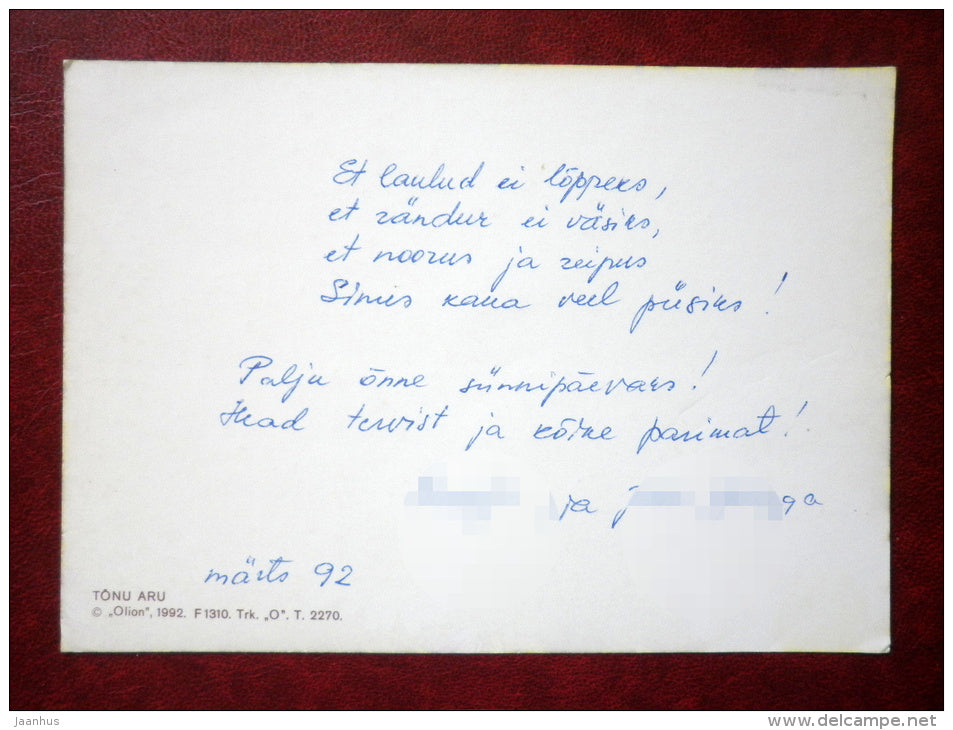 Et laulud ei lõppeks,
et rändur ei väsiks,
et noorus ja reipus
Sinus kaua veel püsiks!
Palju õnne sünnipäevaks!
Head tervist ja kõike parimat!
ja
märts 92
TÕNU ARU
© „Olion", 1992. F 1310. Trk. „O". T. 2270.
jaanhus
delcampe.net